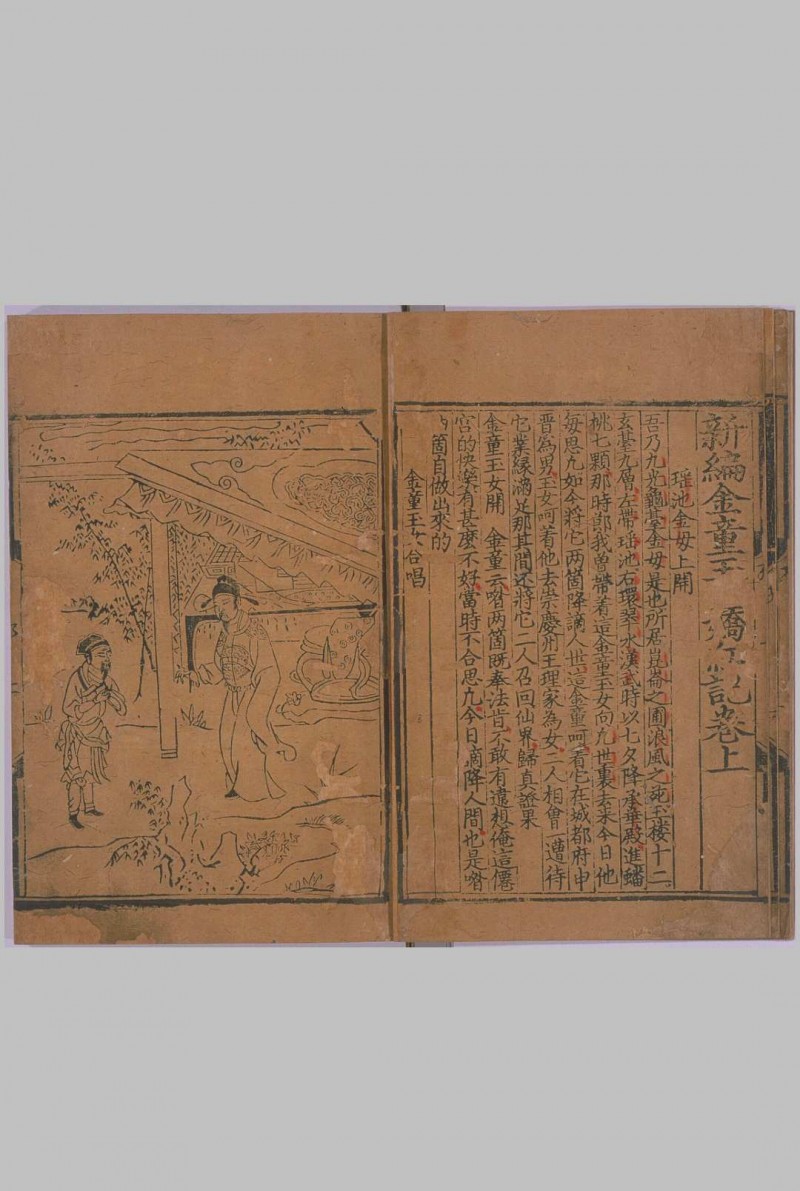 新編金童玉嬌紅記卷上
瑶池金母上開
吾乃九光龜䑓金母是也所居崑崙之圃浪風之苑玉楼十二
玄䑓九層左帶瑶池右環翠水漢武時以七夕降承華殿進蟠
桃七顆那時節我曽帶着這金童玉女向九世裏去来今日他
每思九如今將它两箇降謫人世這金童呵着它在城都府申
晋為男玉女呵着他去崇慶州王理家為女二人相會一遭待
它業縁滿足那其間还將它二人召回仙界歸真證果
金童玉女開 金童云喒两箇既奉法肯不敢有違想俺這僊
宫的快樂有甚麽不好當時不合思九今日謫降人間也是喒
箇自做出来的
金童玉女合唱